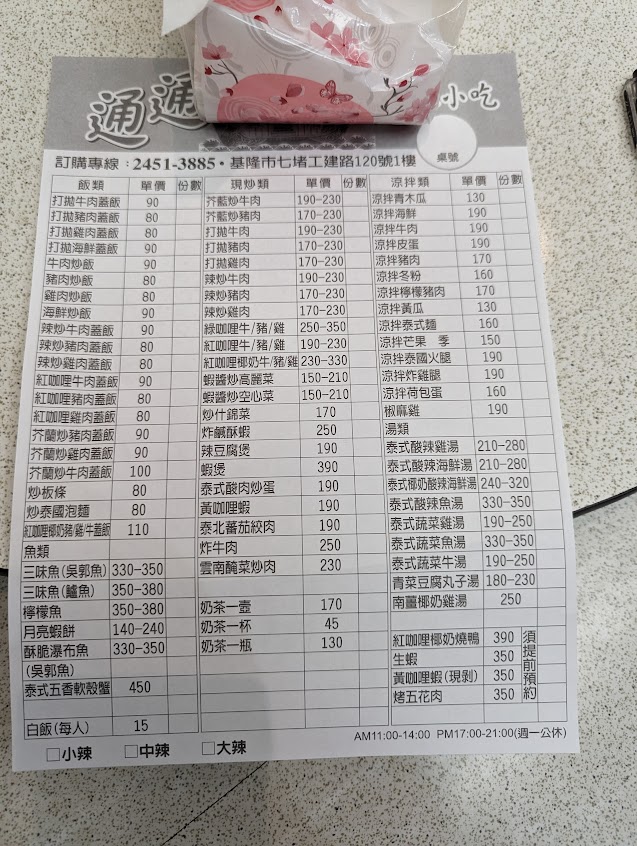 通通
小吃
桌號
訂購專線：2451-3885・基隆市七堵工建路120號1樓
飯類 單價 份數
打拋牛肉蓋飯 90
打拋豬肉蓋飯 80
打拋雞肉蓋飯 80
打拋海鮮蓋飯 90
牛肉炒飯 90
豬肉炒飯 80
雞肉炒飯 80
海鮮炒飯 90
辣炒牛肉蓋飯 90
辣炒豬肉蓋飯 80
辣炒雞肉蓋飯 80
紅咖哩牛肉蓋飯 90
紅咖哩豬肉蓋飯 80
紅咖哩雞肉蓋飯 80
芥蘭炒豬肉蓋飯 90
芥蘭炒雞肉蓋飯 90
芥蘭炒牛肉蓋飯 100
炒板條 80
炒泰國泡麵 80
紅咖哩椰奶豬/雞/牛蓋飯 110
魚類
三味魚(吳郭魚) 330-350
三味魚(鱸魚) 350-380
檸檬魚 350-380
月亮蝦餅 140-240
酥脆瀑布魚 330-350
(吳郭魚)
泰式五香軟殼蟹 450
白飯(每人) 15
現炒類 單價 份數
芥藍炒牛肉 190-230
芥藍炒豬肉 170-230
打拋牛肉 190-230
打拋豬肉 170-230
打拋雞肉 170-230
辣炒牛肉 190-230
辣炒豬肉 170-230
辣炒雞肉 170-230
綠咖哩牛/豬/雞 250-350
紅咖哩牛/豬/雞 190-230
紅咖哩椰奶牛/豬/雞 230-330
蝦醬炒高麗菜 150-210
蝦醬炒空心菜 150-210
炒什錦菜 170
炸鹹酥蝦 250
辣豆腐煲 190
蝦煲 390
泰式酸肉炒蛋 190
黃咖哩蝦 190
泰北蕃茄絞肉 190
炸牛肉 250
雲南醃菜炒肉 230
奶茶一壺 170
奶茶一杯 45
奶茶一瓶 130
涼拌類 單價 份數
涼拌青木瓜 130
涼拌海鮮 190
涼拌牛肉 190
涼拌皮蛋 190
涼拌豬肉 170
涼拌冬粉 160
涼拌檸檬豬肉 170
涼拌黃瓜 130
涼拌泰式麵 160
涼拌芒果 季 150
涼拌泰國火腿 190
涼拌炸雞腿 190
涼拌荷包蛋 160
椒麻雞 190
湯類
泰式酸辣雞湯 210-280
泰式酸辣海鮮湯 210-280
泰式椰奶酸辣海鮮湯 240-320
泰式酸辣魚湯 330-350
泰式蔬菜雞湯 190-250
泰式蔬菜魚湯 330-350
泰式蔬菜牛湯 190-250
青菜豆腐丸子湯 180-230
南薑椰奶雞湯 250
紅咖哩椰奶燒鴨 390
生蝦 350
黃咖哩蝦(現剝) 350
烤五花肉 350
須提前預約
AM11:00-14:00 PM17:00-21:00(週一公休)
□小辣 □中辣 □大辣